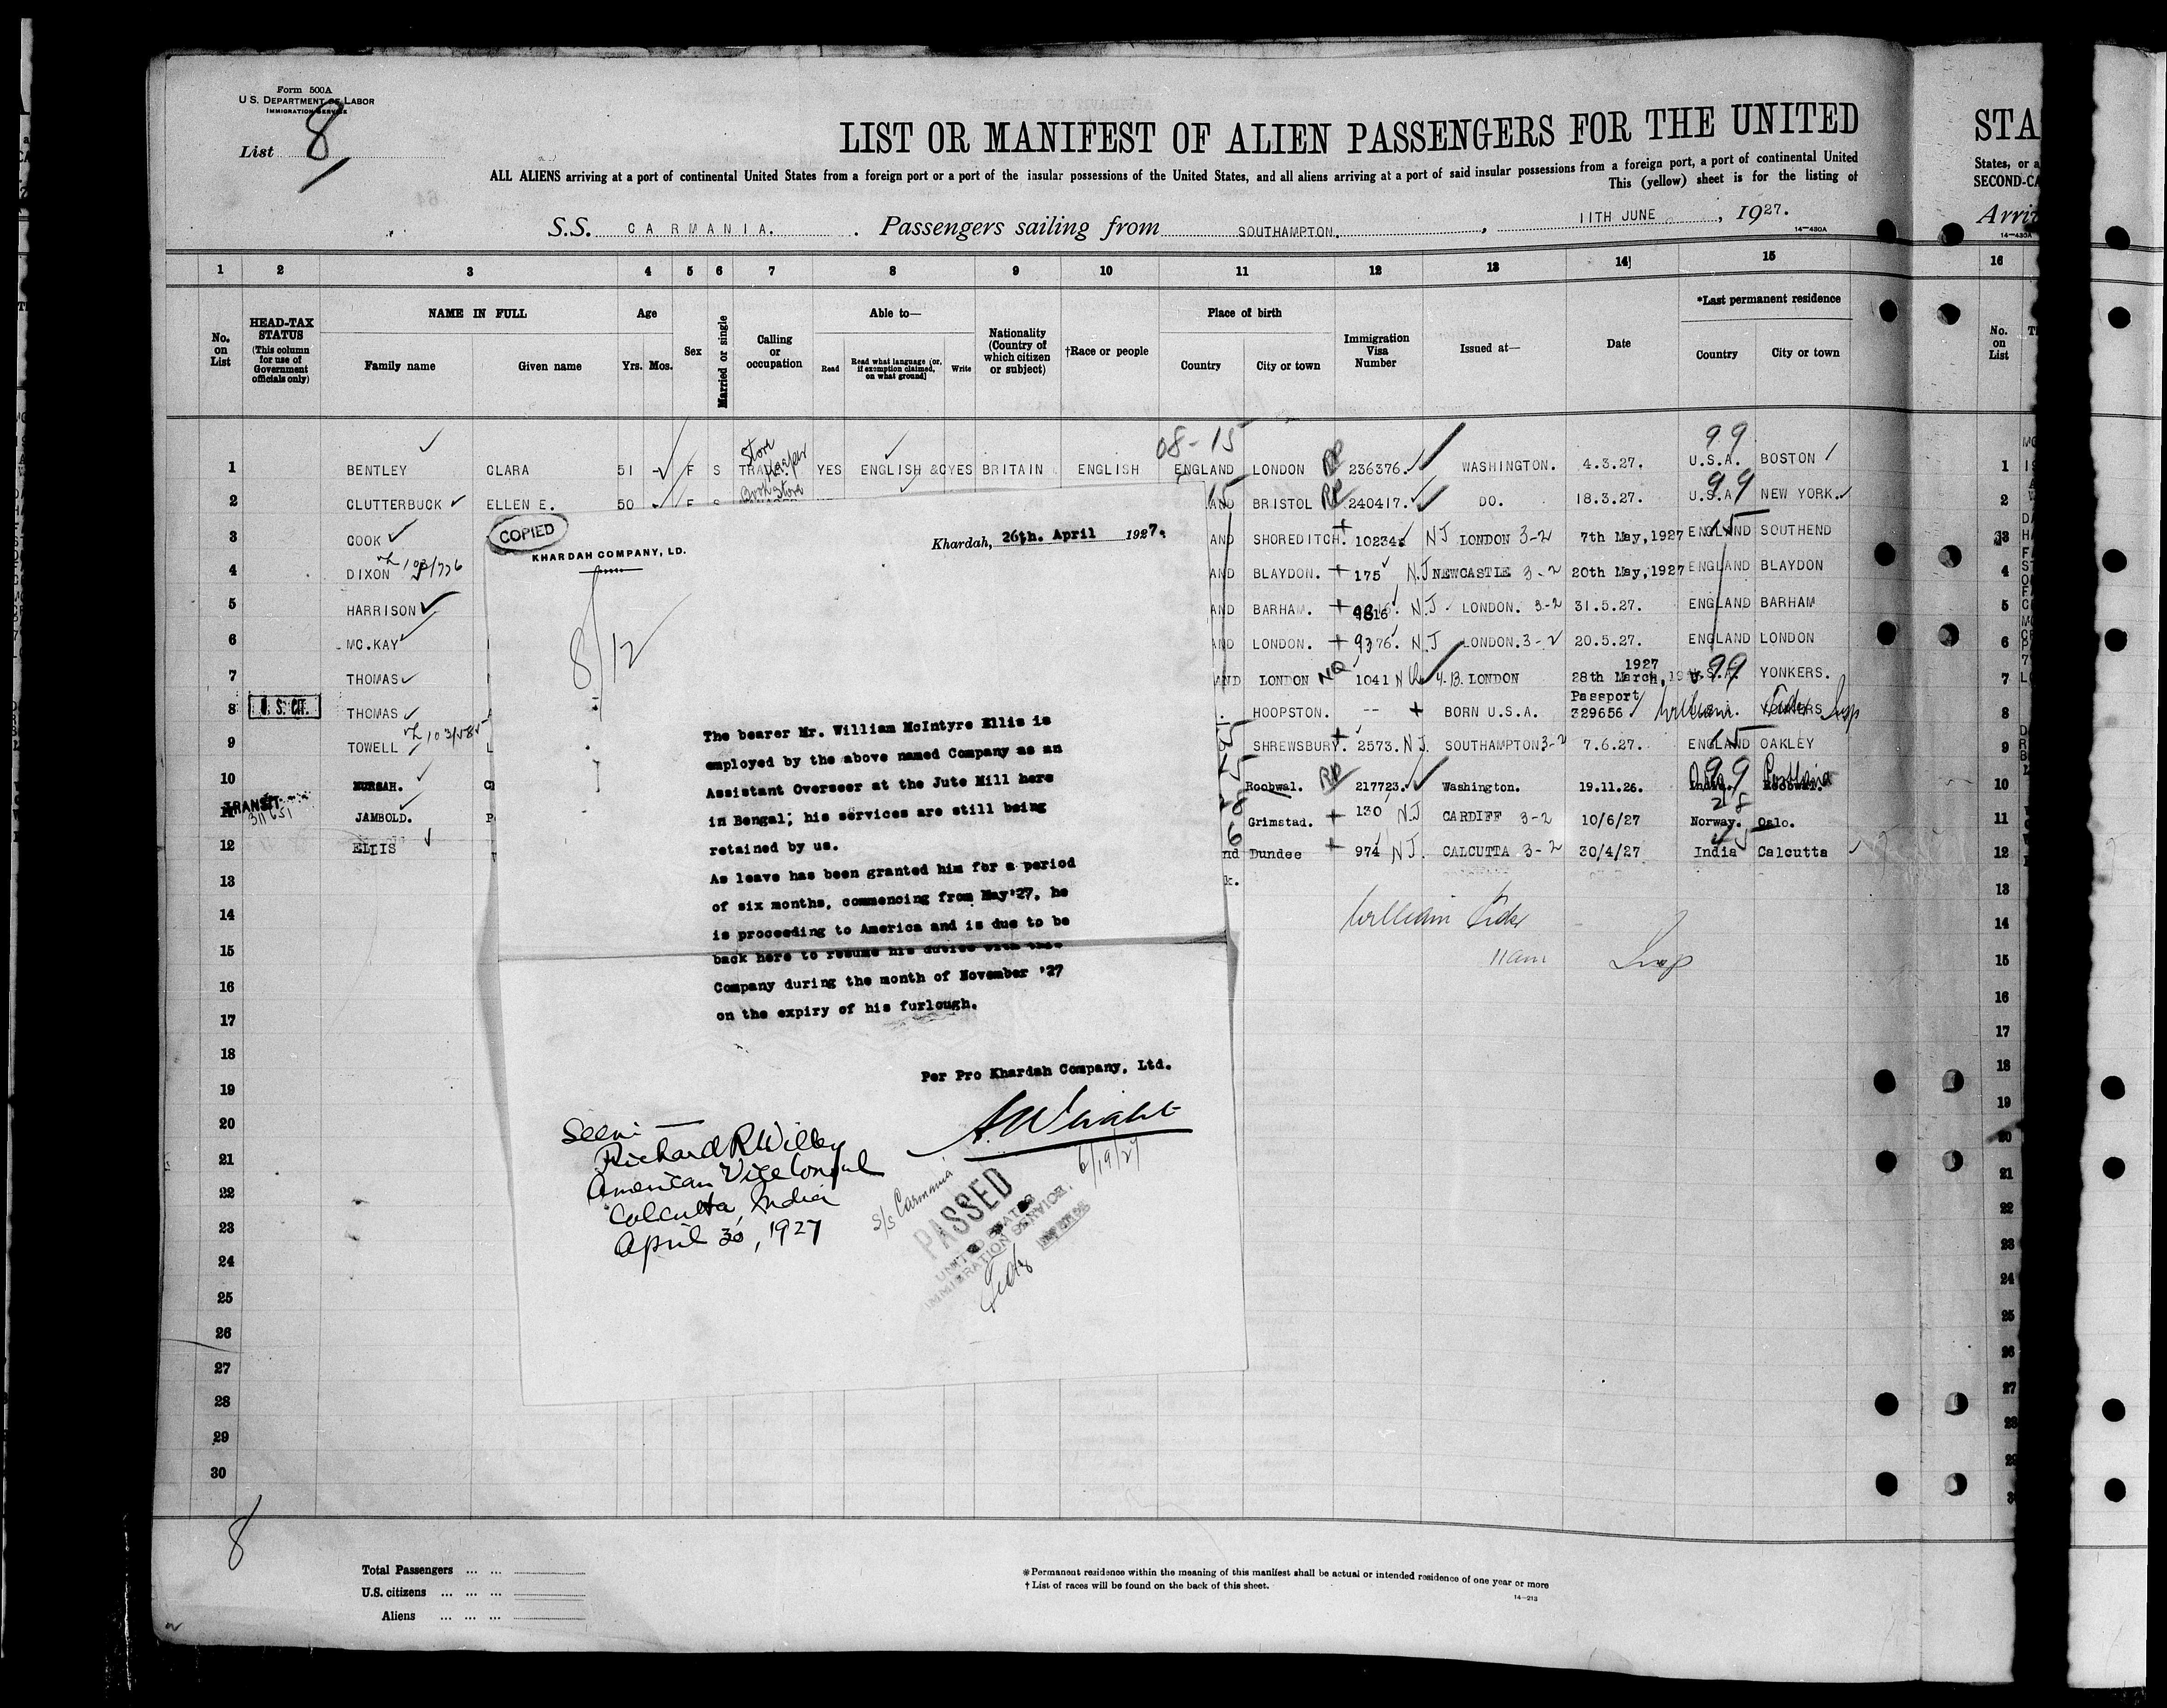 Form 500A
U.S. DEPARTMENT OF LABOR
IMMIGRATION SERVICE
List 8
LIST OR MANIFEST OF ALIEN PASSENGERS FOR THE UNITED
ALL ALIENS arriving at a port of continental United States from a foreign port or a port of the insular possessions of the United States, and all aliens arriving at a port of said insular possessions from a foreign port, a port of continental United
This (yellow) sheet is for the listing of
S.S. CARMANIA. Passengers sailing from SOUTHAMPTON, 11TH JUNE, 1927.
14-430A
STA
States, or a
SECOND-CA
Arriv
14-430A
1 2 3 4 5 6 7 8 9 10 11 12 13 14 15 16
No. on List
HEAD-TAX STATUS (This column for use of Government officials only)
NAME IN FULL
Family name Given name
Age
Yrs. Mos.
Sex
Married or single
Calling or occupation
Able to—
Read Read what language (or, if exemption claimed, on what ground) Write
Nationality (Country of which citizen or subject)
†Race or people
Place of birth
Country City or town
Immigration Visa Number
Issued at—
Date
*Last permanent residence
Country City or town
No. on List
08-15 99
1 BENTLEY CLARA 51 F S Store Keeper YES ENGLISH &C YES BRITAIN ENGLISH ENGLAND LONDON RP 236376. WASHINGTON. 4.3.27. U.S.A. BOSTON 1
2 CLUTTERBUCK ELLEN E. 50 F S Book Store AND BRISTOL RP 240417. DO. 18.3.27. U.S.A. 99 NEW YORK. 2
3 COOK AND SHOREDITCH. 10234 NJ LONDON 3-2 7th May, 1927 ENGLAND 15 SOUTHEND 3
4 DIXON AND BLAYDON. 175 N.J NEWCASTLE 3-2 20th May, 1927 ENGLAND BLAYDON 4
5 HARRISON AND BARHAM. 9816 N.J LONDON. 3-2 31.5.27. ENGLAND BARHAM 5
6 MC.KAY AND LONDON. 9376. N.J LONDON. 3-2 20.5.27. ENGLAND LONDON 6
7 THOMAS AND LONDON NQ 1041 4.13. LONDON 28th March, 1927 U.S.A. 99 YONKERS. 7
8 U.S. CIT. THOMAS HOOPSTON. -- BORN U.S.A. Passport 329656 YONKERS 8
9 TOWELL SHREWSBURY. 2573. N.J. SOUTHAMPTON 3-2 7.6.27. ENGLAND 15 OAKLEY 9
10 Roobwal. RP 217723. Washington. 19.11.26. India. 99 Roobwal. 10
11 TRANSIT JAMBOLD. Grimstad. 130 N.J CARDIFF 3-2 10/6/27 Norway. Oslo. 11
12 ELLIS nd Dundee 974 N.J. CALCUTTA 3-2 30/4/27 India Calcutta 12
k.
13 13
14 14
11am Insp
15 15
16 16
17 17
18 18
19 19
20 20
21 21
22 22
23 23
24 24
25 25
26 26
27 27
28 28
29 29
30
COPIED
KHARDAH COMPANY, LD.
Khardah, 26th. April 1927.
8/12
The bearer Mr. William McIntyre Ellis is
employed by the above named Company as an
Assistant Overseer at the Jute Mill here
in Bengal; his services are still being
retained by us.
As leave has been granted him for a period
of six months, commencing from May'27, he
is proceeding to America and is due to be
back here to resume his duties with the
Company during the month of November '27
on the expiry of his furlough.
Per Pro Khardah Company, Ltd.
Seen:—
Richard R Willey
American Vice Consul
Calcutta, India
April 30, 1927
S/S Carmania
6/19/27
PASSED
UNITED STATES
IMMIGRATION SERVICE
8
Total Passengers
U.S. citizens
Aliens
*Permanent residence within the meaning of this manifest shall be actual or intended residence of one year or more
† List of races will be found on the back of this sheet.
14-213